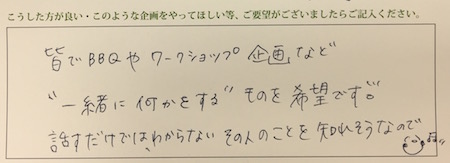 こうした方が良い・このような企画をやってほしい等、ご要望がございましたらご記入ください。
皆でBBQや ワークショップ 企画など
"一緒に何かをする" ものを希望です。
話すだけでは、わからない その人のことを 知れそうなので